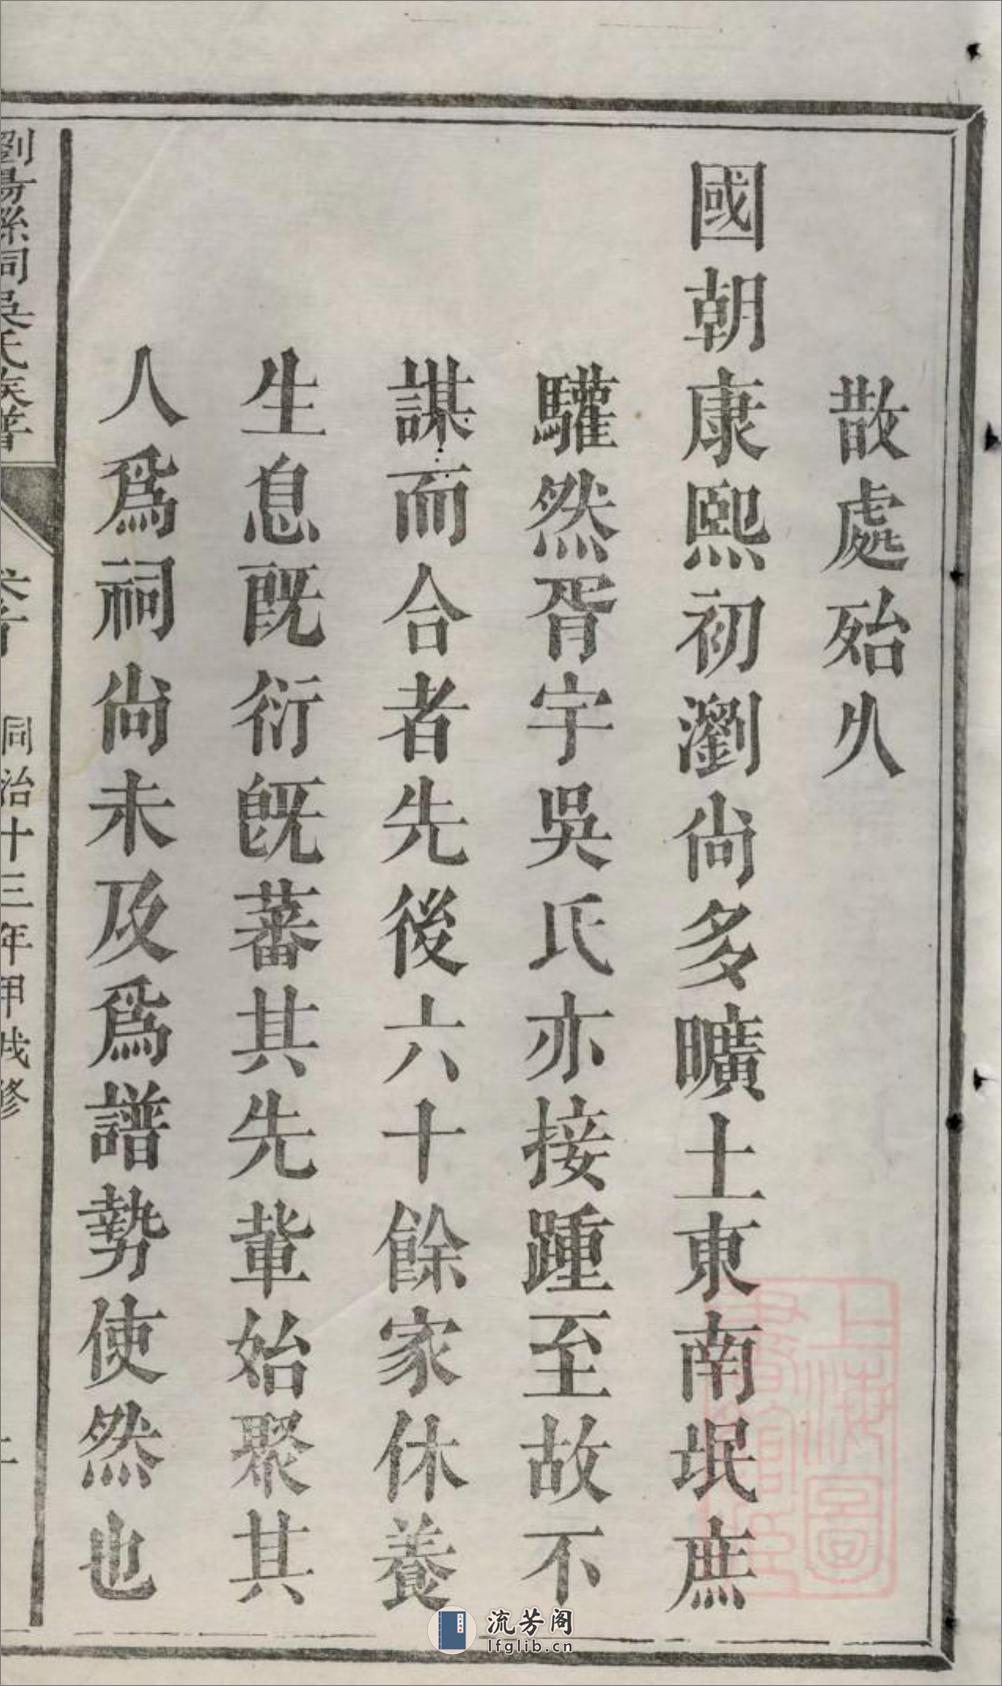 散處殆久
國朝康熙初瀏尚多曠土東南氓庶
驩然胥宇吳氏亦接踵至故不
謀而合者先後六十餘家休養
生息既衍既蕃其先軰始聚其
人爲祠尚未及爲譜勢使然也
瀏陽縣祠吳氏族譜
卷首
同治十三年甲戌修
上海圖書館藏
流芳阁
lfglib.cn